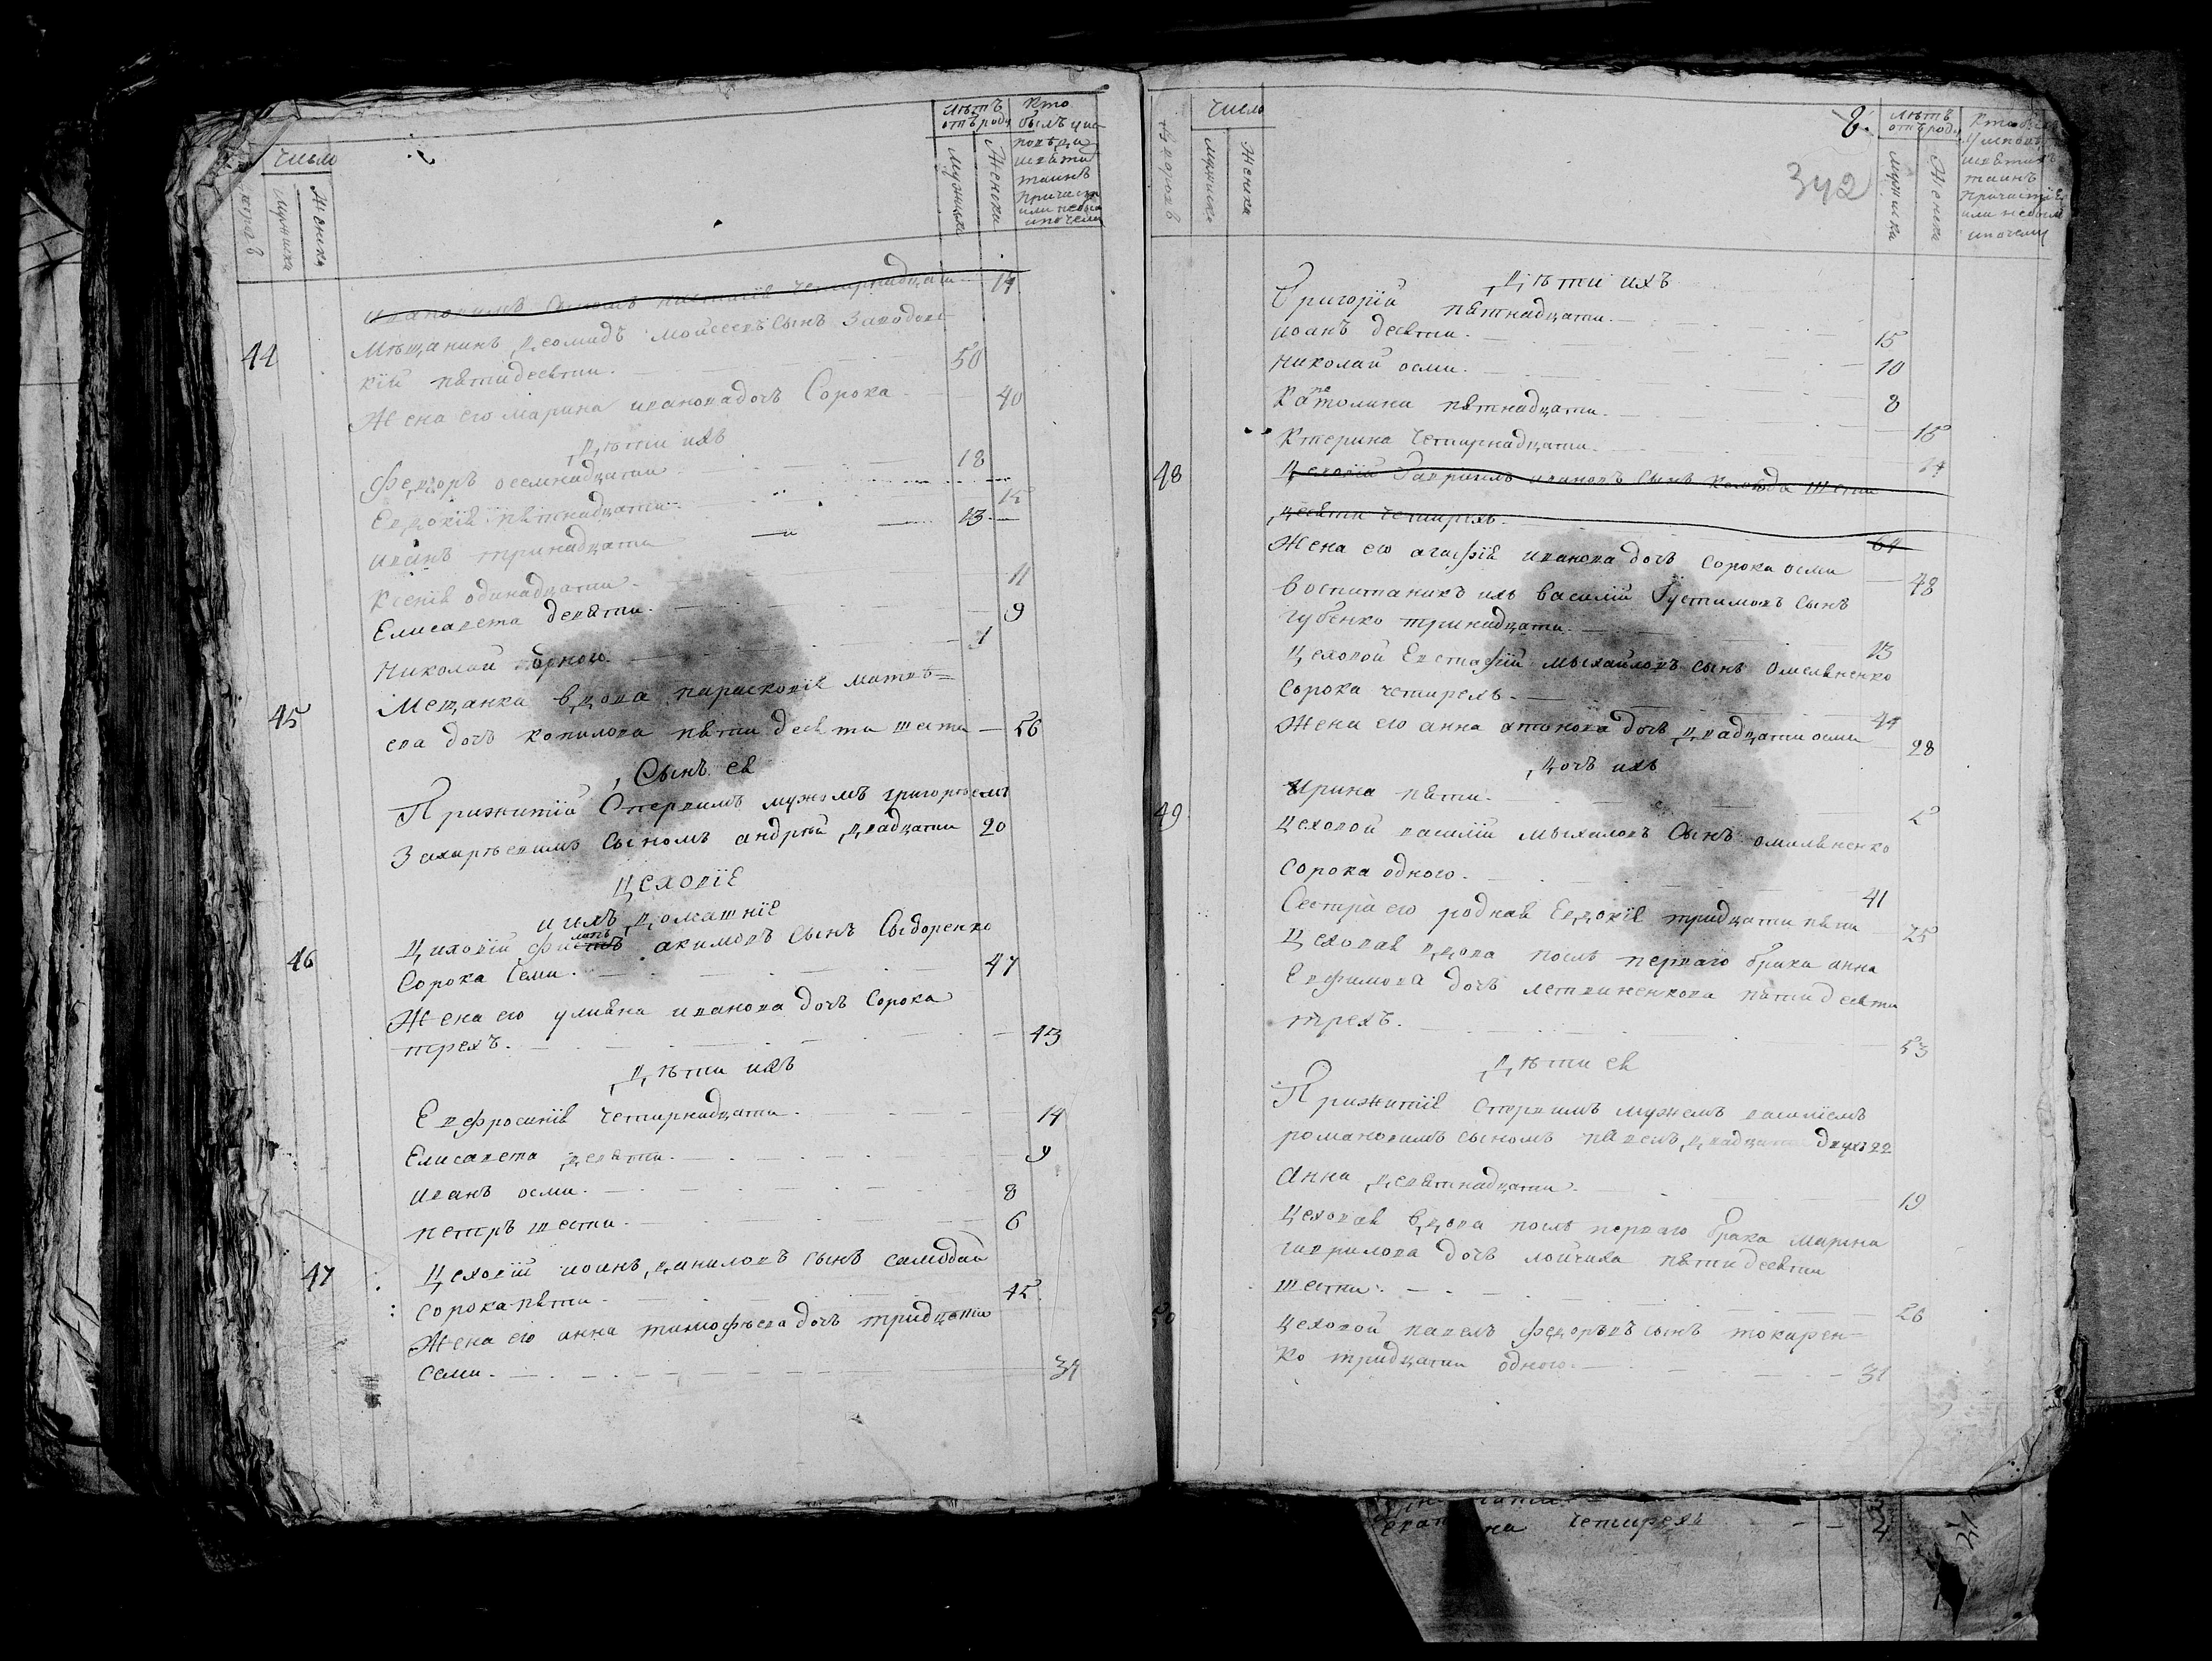 Число
Мужиска
Женска
Лѣтъ
отъ роду
Мужиска
Женска
Кто
былъ
14
44
Мѣщанинъ Деомидъ Моисеевъ сынъ Заводов
кій пятидесяти. 50
Жена его Марина Иванова дочь сорока 40
Дѣти ихъ
Федоръ осемнадцати 18
Евдокія пятнадцати 15
Иванъ тринадцати 13
Ксенія одинадцати. 11
Елисавета девяти. 9
Николай одного. 1
45
Мещанка вдова Параскевія Матвѣ=
ева дочь Копилова пяти десяти шести 56
Сынъ ея
Прижитій с первимъ мужемъ Григоріемъ
Захарѣевимъ сыномъ Андрѣй двадцати 20
Цеховіе
и ихъ домашніе
46
Цеховій Акимовъ сынъ Сыдоренко
сорока семи. 47
Жена его Улияна Иванова дочь сорока
трехъ. 43
Дѣти ихъ
Евфросинія четирнадцати. 14
Елисавета девяти. 9
Иванъ осми. 8
Петръ шести. 6
47
Цеховій Иоанъ Даниловъ сынъ Самодай
сорока пяти. 45
Жена его Анна Тимофѣева дочь тридцати
семи. 37
№ дворовъ
Число
Мужиска
Женска
8.
342
Лѣтъ
отъ роду
Мужиска
Женска
Дѣти ихъ
Григорій пятнадцати. 15
Иоанъ десяти. 10
Николай осми. 8
пятнадцати. 15
Ктерина четирнадцати. 14
48
Цеховій Гавріилъ Ивановъ сынъ шести
десяти четирехъ. 64
Жена его Агафія Иванова дочь сорока осми 48
Воспитаникъ ихъ Василій Густимовъ сынъ
Губенко тринадцати. 13
Цеховой Евстафій Мыхайловъ сынъ Омеляненко
сорока четирехъ. 44
Жена его Анна дочь двадцати осми 28
Дочь ихъ
Ирина пяти. 5
49
Цеховой Василій Мыхаловъ сынъ Омеляненко
сорока одного. 41
Сестра его родная Евдокія тридцати пяти 35
Цеховая вдова послѣ перваго брака Анна
Евфимова дочь Летвиненкова пяти десяти
трехъ. 53
Дѣти ея
Прижитія с первимъ мужемъ Василіемъ
Романовимъ сыномъ Павелъ двадцати двухъ 22
Анна девятнадцати. 19
Цеховая вдова послѣ перваго брака Марина
Гаврилова дочь Лойчиха пяти десяти
шести. 56
50
Цеховой Павелъ Федоровъ сынъ Токарен=
ко тридцати одного. 31
четирехъ 4